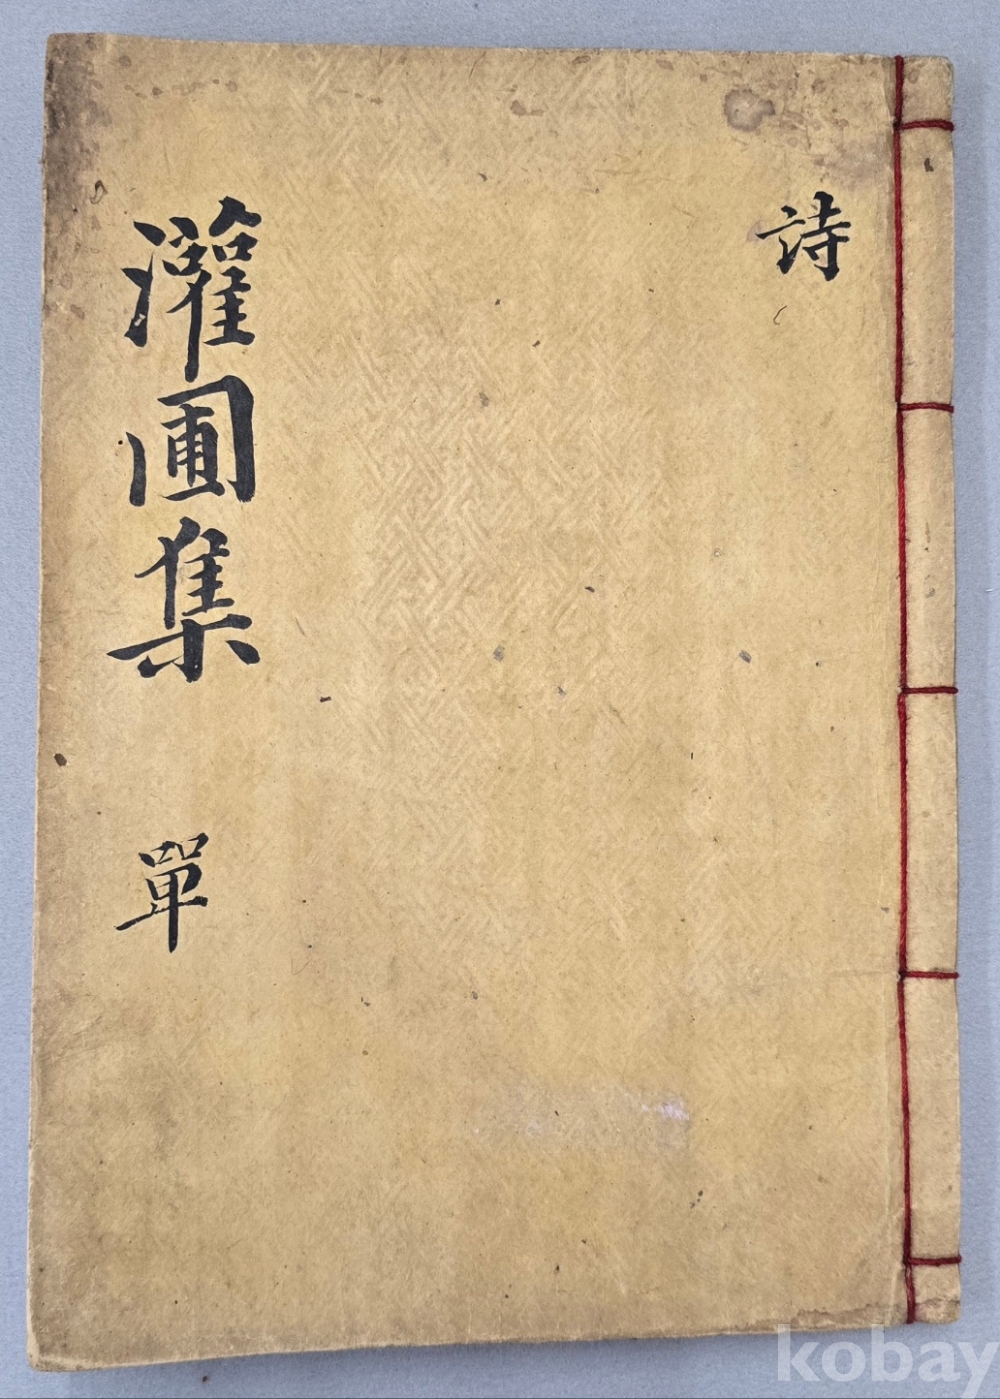 詩
灌圃集
單
kobay